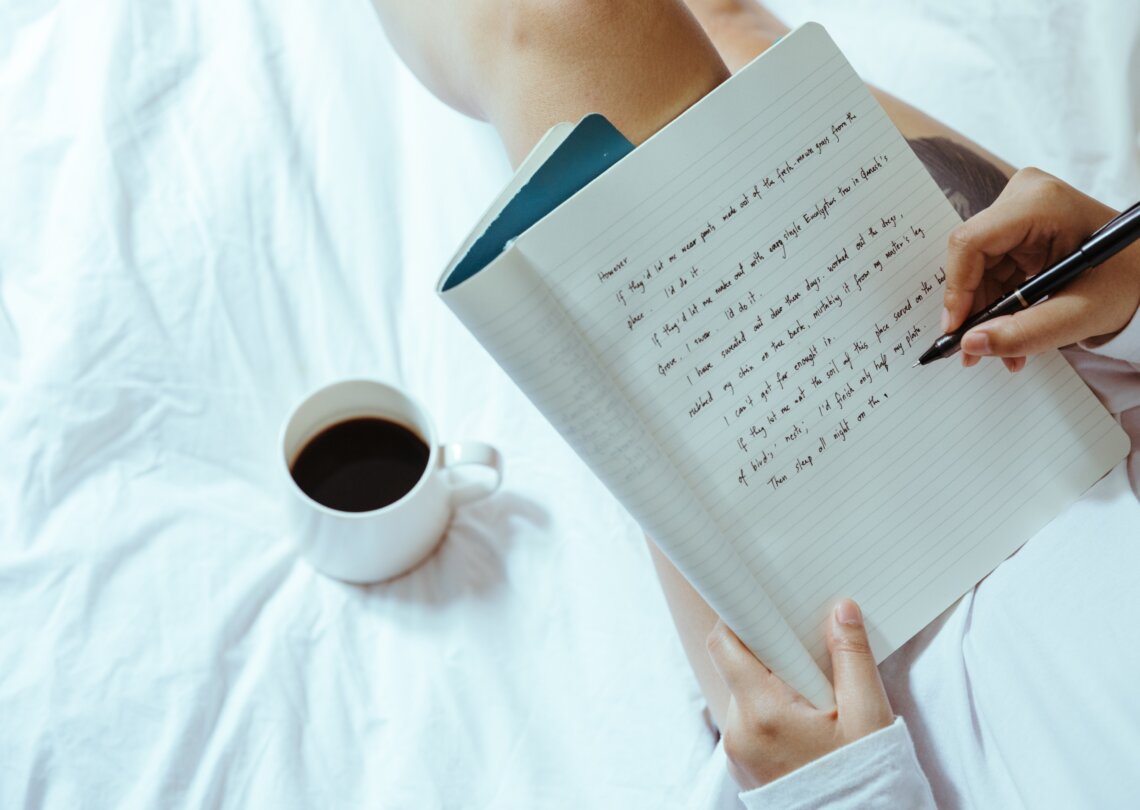 However
If they'd let me wear pants made out of the fresh-mown grass from the
place. I'd do it.
If they'd let me make out with every single Eucalyptus tree in Ganesh's
Grove. I swear. I'd do it.
I have sweated out dear these days. worked out the dregs,
rubbed my chin on tree bark, mistaking it from my master's leg
I can't get far enough in.
If they let me eat the soil of this place served on the bed
of bird's nests, I'd finish only half my plate.
Then sleep all night on the